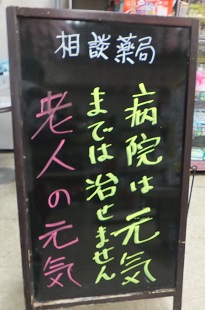 相談薬局
病院は元気
までは治せません
老人の元気